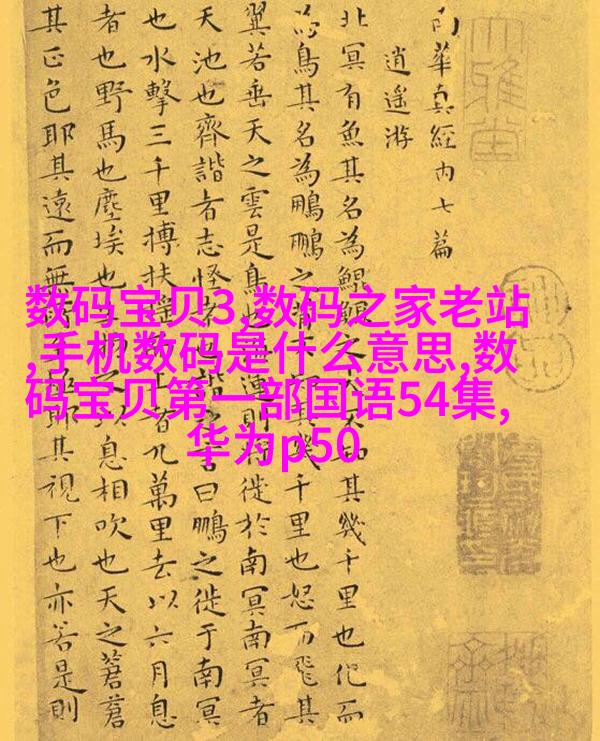 南華真經内七篇
逍遥游
北冥有魚其名為鯤鯤之大知其幾千里也化而
為鳥其名為鵬鵬之背其幾千里也怒而飛其
翼若垂天之雲是鳥也運則將徙於南冥南冥者
天池也齊諧者志怪者也諧之言曰鵬之徙于南冥
也水擊三千里搏扶摇上者九萬里去以六月息
者也野馬也塵埃也生物以息相吹也天之蒼蒼
其正色耶其遠而無所至極耶其視下也亦若是則
数码宝贝3,数码之家老站
,手机数码是什么意思,数
码宝贝第一部国语54集,
华为p50